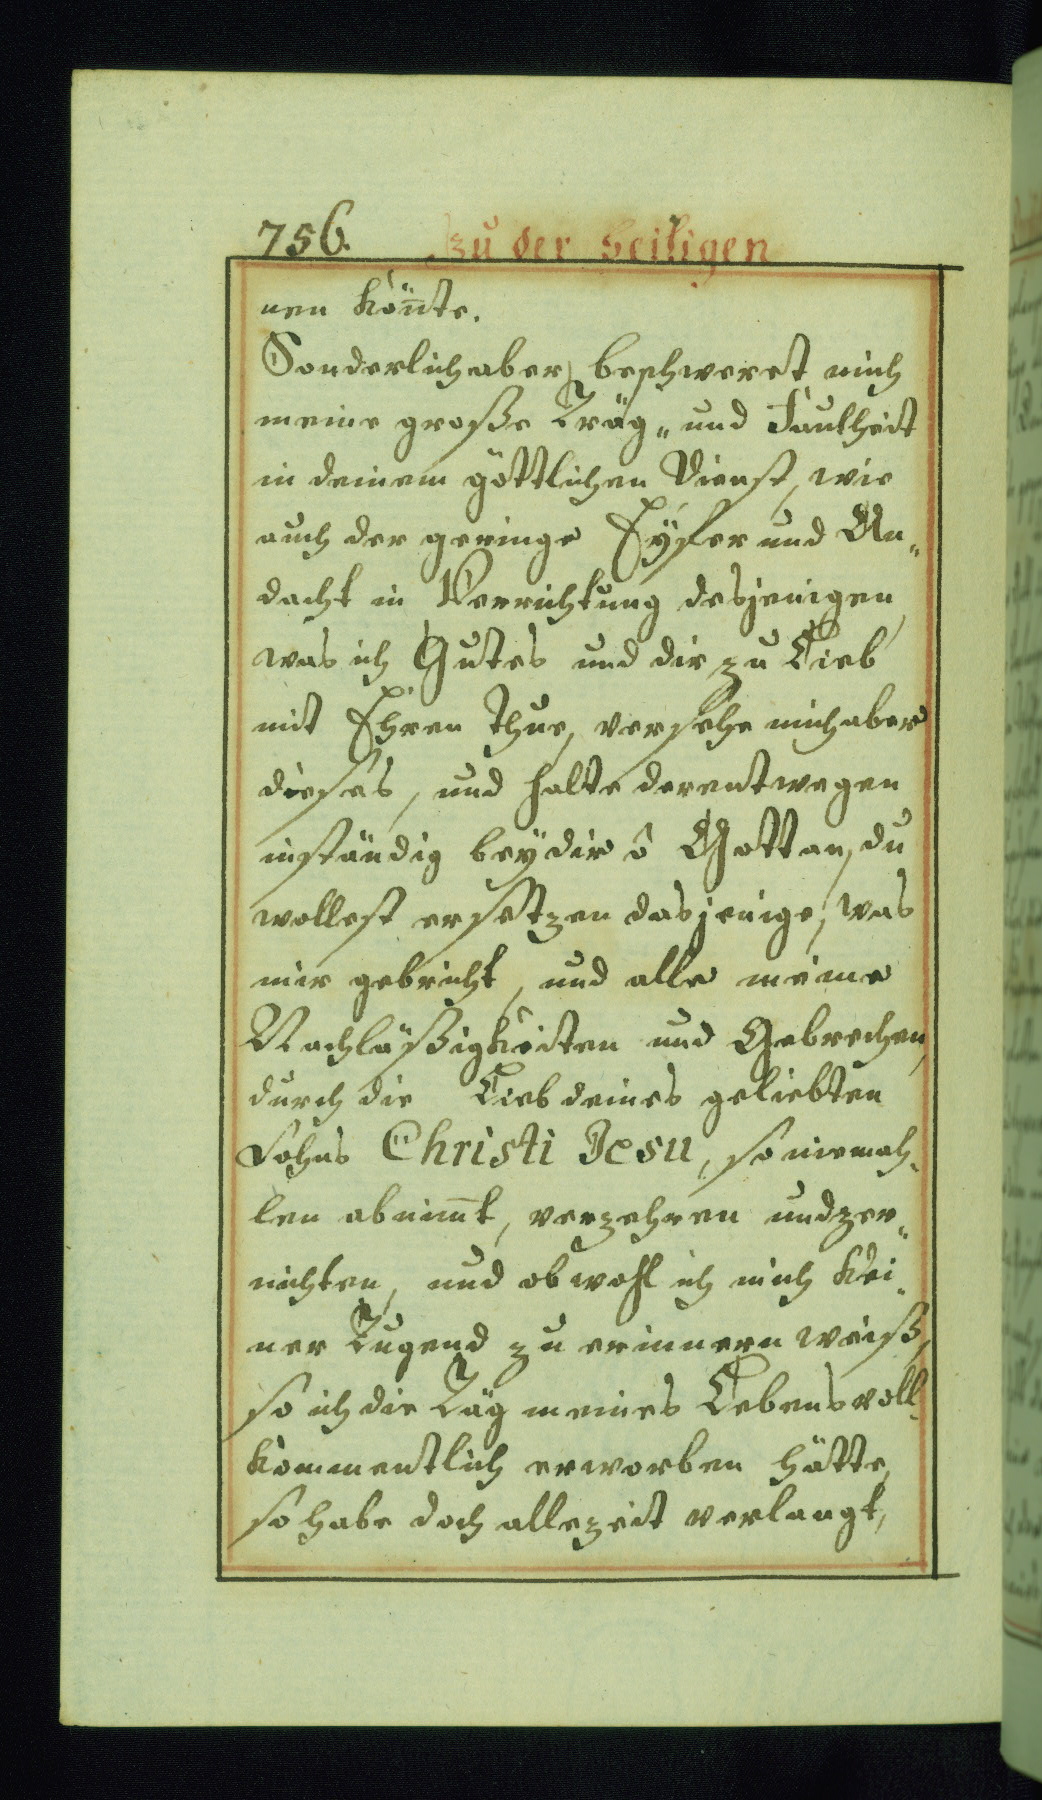 756. zu der heiligen
nen kön̄te.
Sonderlich aber beschweret mich
meine große Träg„ und Faulheit
in deinem göttlichen Dienst, wie
auch der geringe Eÿfer und An„
dacht in Verrichtung desjenigen,
was ich Gutes und dir zu Lieb
mit Ehren thue, versehe mich aber
dieses, und halte derentwegen
inständig beÿ dir ô Gott an, du
wollest ersetzen dasjenige, was
mir gebricht, und alle meine
Nachläßigkeiten und Gebrechen,
durch die Lieb deines geliebten
Sohns Christi Jesu, so niemah„
len abnim̄t, verzehren und zer„
nichten, und obwohl ich mich kei„
ner Tugend zu erinnern weiß,
so ich die Täg meines Lebens voll„
kommentlich erworben hätte,
so habe doch allezeit verlangt,